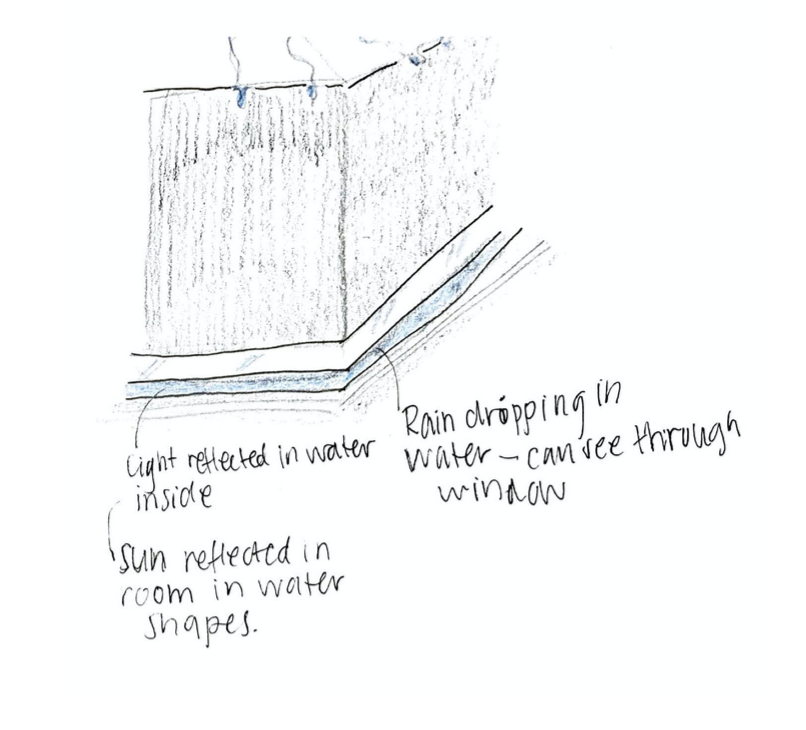 Light reflected in water
inside
Sun reflected in
room in water
shapes.
Rain dropping in
water – can see through
window